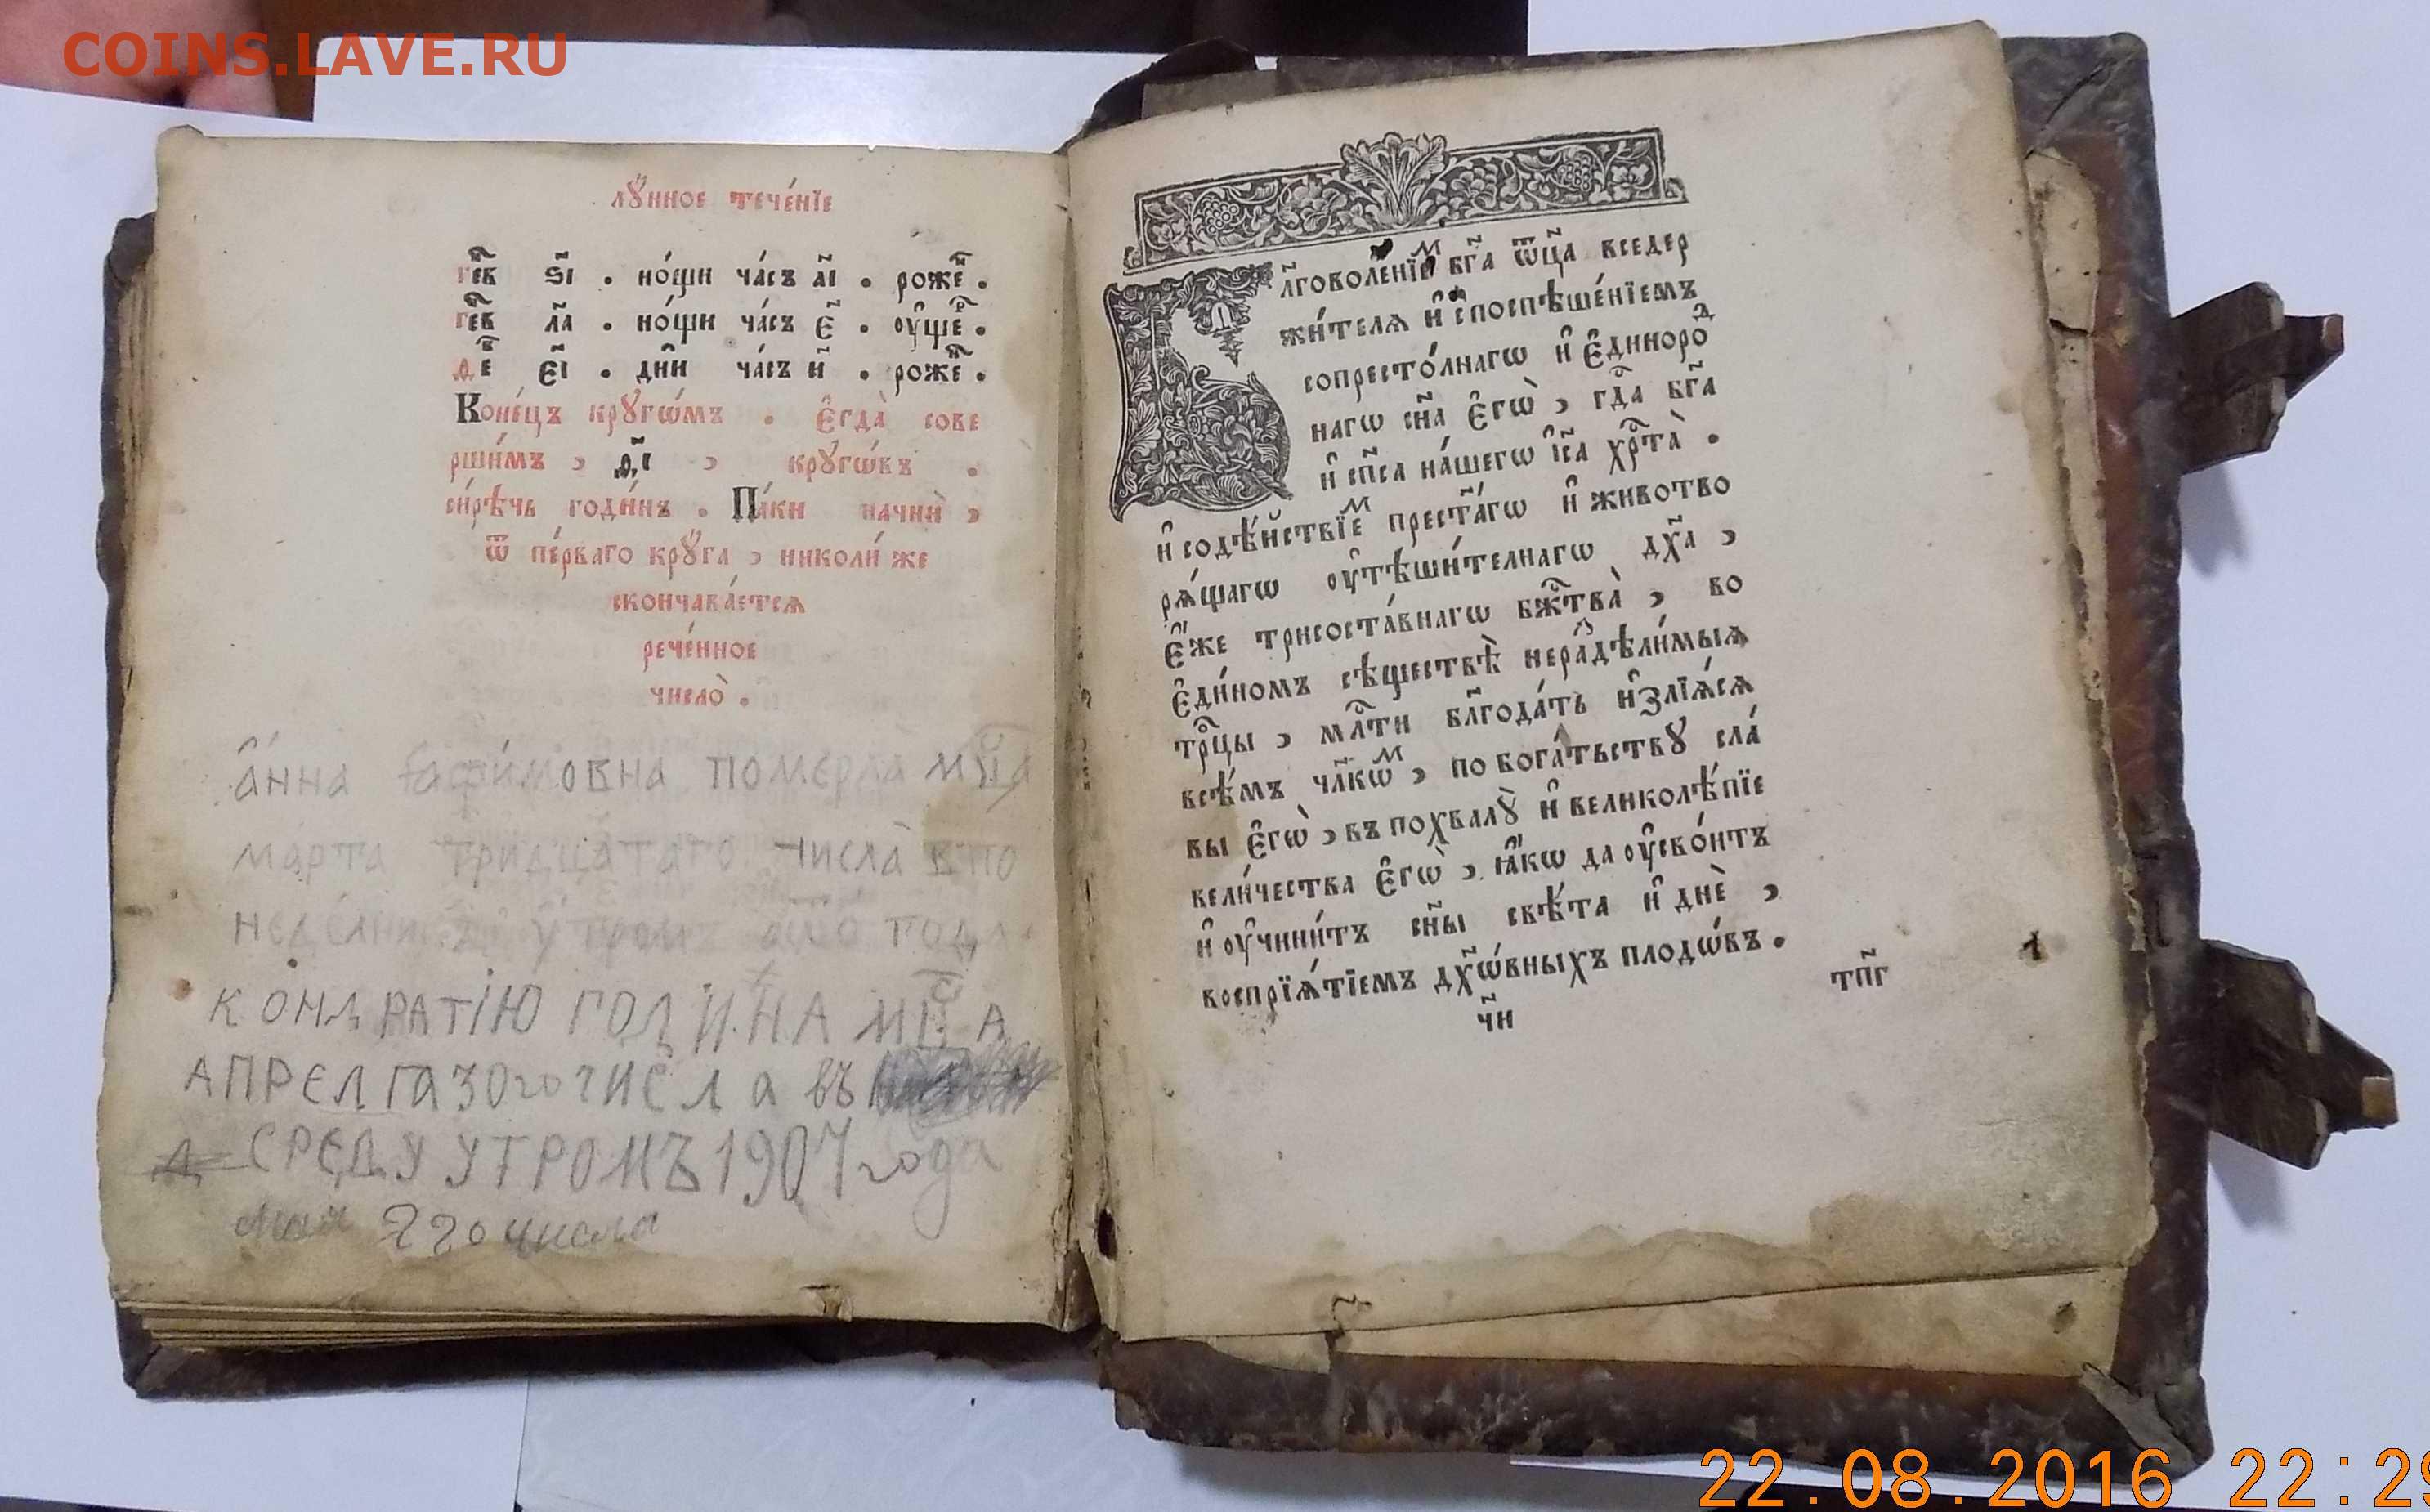 COINS.LAVE.RU
лꙋ́нное тече́нїе
ноши ча́съ а҃і . роже .
ла҃ . но́щи ча́съ є҃ . оу҆ще .
є҃і . дни̑ ча́съ и҃ . роже .
Коне́цъ крꙋгѡ́мъ . є҆гда̀ сове
рши́мъ , д҃і , крꙋгѡ́въ .
си́рѣчь годи́нъ . Па́ки начнѝ ,
ѿ пе́рваго крꙋ́га , николи́ же
сконча́ваетсѧ
рече́нное
число̀ .
а҆́нна помєрла мц҃а
марта тридцатаго числа в по
недєлник утром года
КОНДРАТІЮ ГОДИНА МЦ҃А
АПРЕЛ ГА 30го ЧИСЛА ВЪ
СРЕДУ УТРОМЪ 1907 года
мая 22го числа
Бл҃говоле́нїеⷨ бг҃а ѿц҃а вседер
жи́телѧ и҆ споспѣше́нїемъ
сопресто́лнагѡ и҆ є҆диноро́ⷣ
нагѡ сн҃а є҆гѡ̀ , гд҇а бг҃а
и҆ сп҃са на́шегѡ і҆с҃а хрⷭ҇та̀ .
и҆ содѣ́йствїеⷨ прест҃а́гѡ и҆ животво
рѧ́щагѡ оу҆тѣши́телнагѡ дх҃а ,
є҆́же трисоста́внагѡ бжⷭ҇тва̀ , во
є҆ди́номъ сѣществѣ̀ нера́ⷥдѣли́мыѧ
трⷪ҇цы , млⷭ҇ти бл҃года́ть и҆злїѧ́сѧ
всѣ́мъ чл҃кѡⷨ , по бога́тьствꙋ сла́
вы є҆гѡ̀ , въ похвалꙋ̀ и҆ великолѣ́пїе
вели́чества є҆гѡ̀ , ꙗ҆́кѡ да оу҆сво́итъ
и҆ оу҆чини́тъ сн҃ы свѣ́та и҆ днѐ ,
воспрїѧ́тїемъ дх҃ѡ́вныхъ плодѡ́въ .
чи҃
тп҃г
22.08.2016 22:29